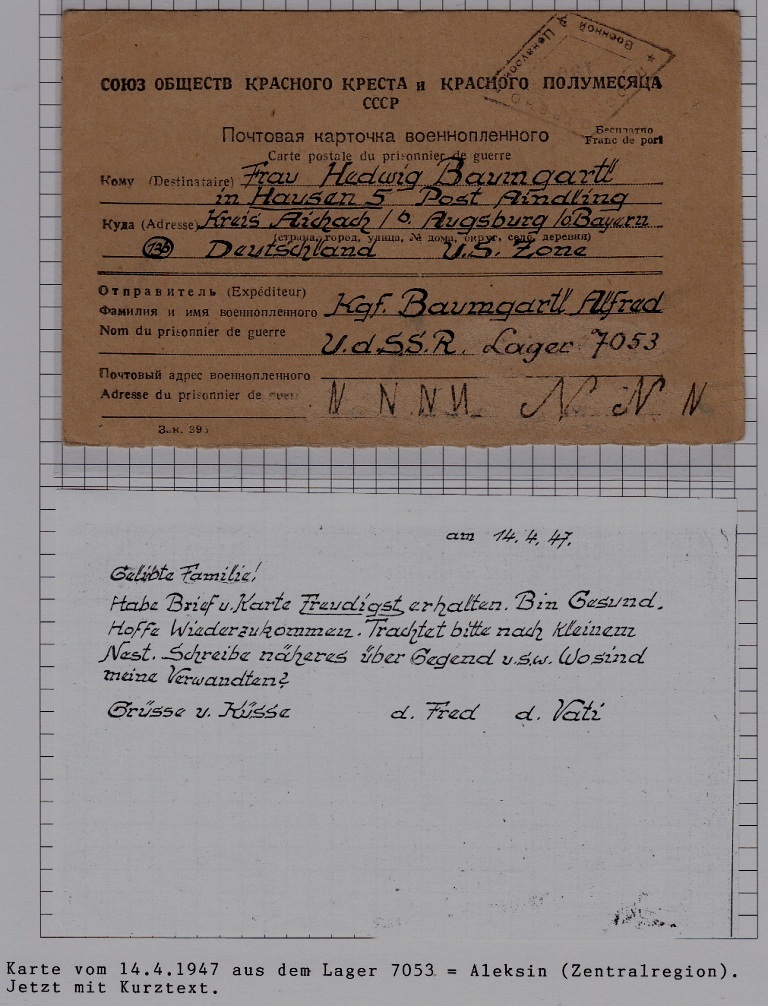 Военной Цензурой
СОЮЗ ОБЩЕСТВ КРАСНОГО КРЕСТА и КРАСНОГО ПОЛУМЕСЯЦА
СССР
Почтовая карточка военнопленного
Бесплатно
Franc de port
Carte postale du prisonnier de guerre
Кому (Destinataire) Frau Hedwig Baumgartl
in Hausen 5 Post Aindling
Куда (Adresse) Kreis Aichach / b. Augsburg /o Bayern
(страна, город, улица, № дома, округ, село, деревня)
13b Deutschland U.S. Zone
Отправитель (Expéditeur)
Фамилия и имя военнопленного Kgf. Baumgartl Alfred
Nom du prisonnier de guerre
U.d.S.S.R. Lager 7053
Почтовый адрес военнопленного
Adresse du prisonnier de guerre N N N N N N N
Зак. 395
am 14.4.47.
Gelibte Familie!
Habe Brief u. Karte Freudigst erhalten. Bin Gesund.
Hoffe Wiederzukommen. Trachtet bitte nach kleinem
Nest. Schreibe näheres über Gegend u.s.w. Wo sind
meine Verwandten?
Grüsse u. Küsse d. Fred d. Vati
Karte vom 14.4.1947 aus dem Lager 7053 = Aleksin (Zentralregion).
Jetzt mit Kurztext.